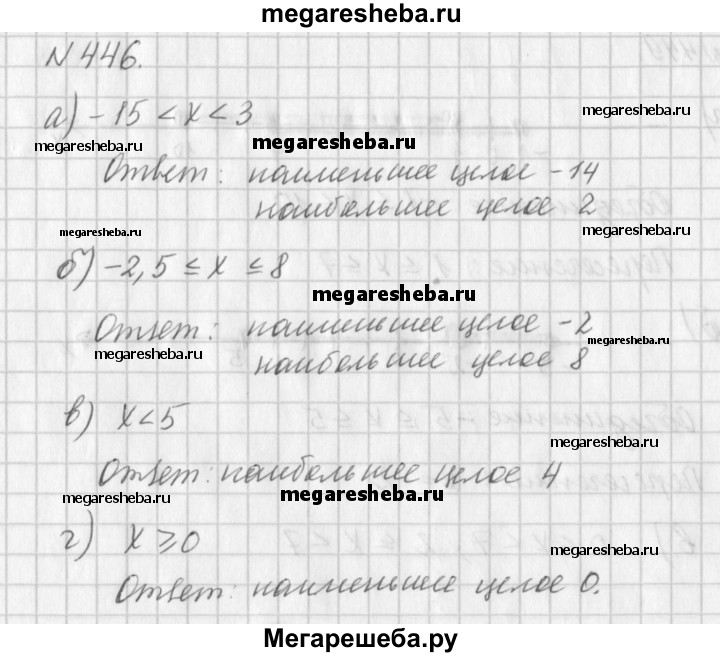 megaresheba.ru
N 446.
а) -15 < x < 3
megaresheba.ru
megaresheba.ru
megaresheba.ru
Ответ: наименьшее целое -14
наибольшее целое 2
megaresheba.ru
megaresheba.ru
б) -2,5 ≤ x ≤ 8
megaresheba.ru
Ответ: наименьшее целое -2
megaresheba.ru
megaresheba.ru
наибольшее целое 8
в) x < 5
megaresheba.ru
Ответ: наибольшее целое 4
megaresheba.ru
megaresheba.ru
г) x ≥ 0
megaresheba.ru
Ответ: наименьшее целое 0.
Мегарешеба.ру